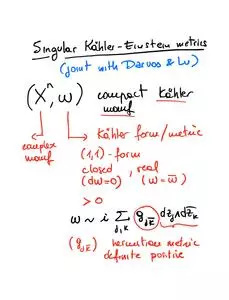 Singular Kähler-Einstein metrics
(joint with Darvas & Lu)
(Xⁿ, ω) compact Kähler
manif
complex
manif
Kähler form/metric
(1,1) - form
closed, real
(dω=0) (ω = ω̄)
> 0
ω ~ i Σ_{j,k} g_{jk̄} dz_j ∧ dz̄_k
(g_{jk̄}) hermitian metric
definite positive